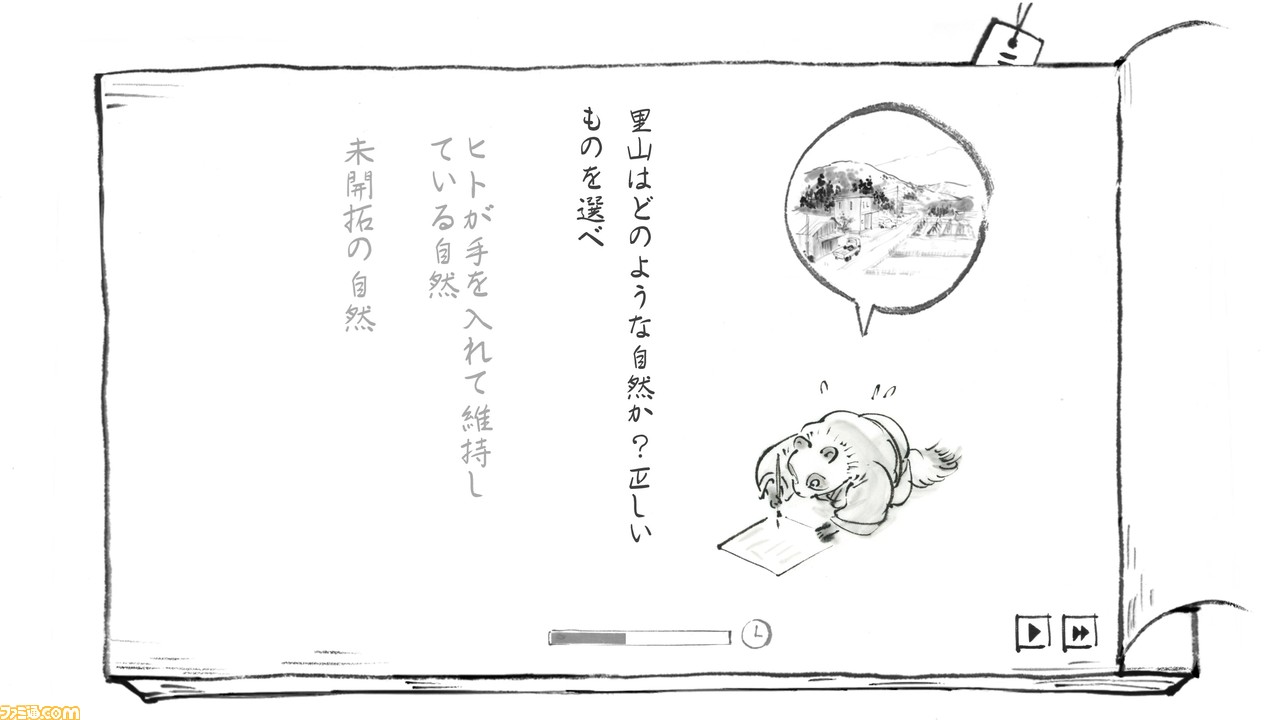 里山はどのような自然か？正しい
ものを選べ
ヒトが手を入れて維持し
ている自然
未開拓の自然
ファミ通.com